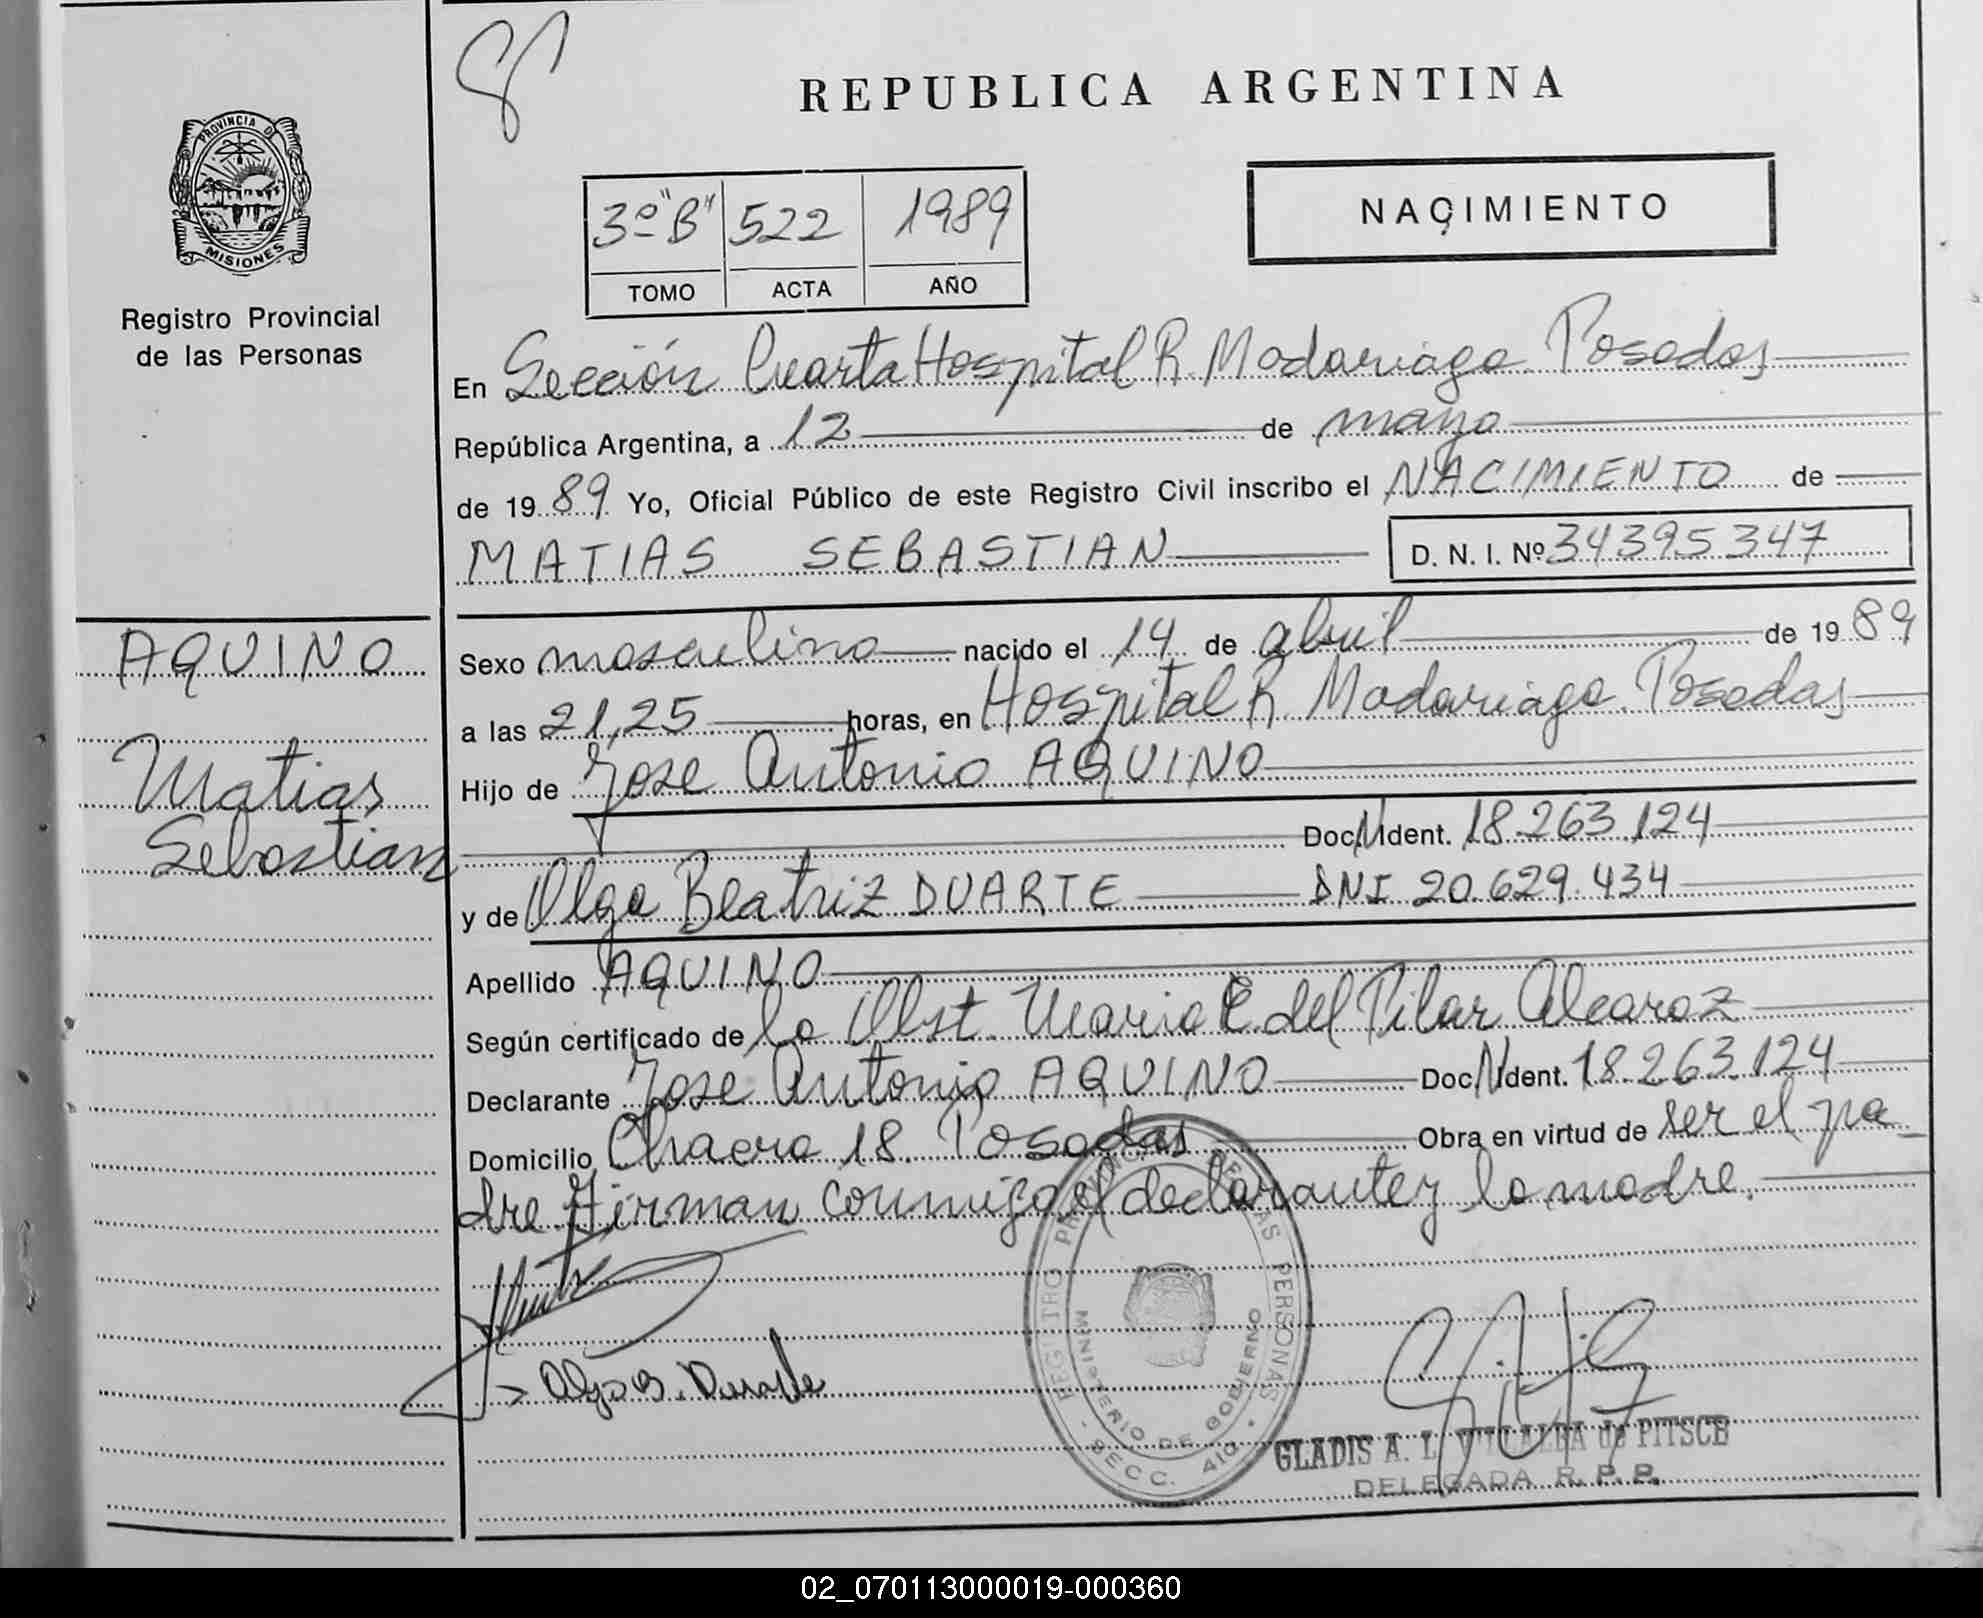 REPUBLICA ARGENTINA
PROVINCIA DE
MISIONES
Registro Provincial
de las Personas
3º "B" 522 1989
TOMO ACTA AÑO
NACIMIENTO
En Sección Cuarta Hospital R. Madariaga. Posadas
República Argentina, a 12 de mayo
de 1989 Yo, Oficial Público de este Registro Civil inscribo el NACIMIENTO de
MATIAS SEBASTIAN D. N. I. Nº 34395347
AQUINO
Matias
Sebastian
Sexo masculino nacido el 14 de abril de 1989
a las 21,25 horas, en Hospital R. Madariaga. Posadas
Hijo de Jose Antonio AQUINO
Doc. Ident. 18.263.124
y de Olga Beatriz DUARTE DNI 20.629.434
Apellido AQUINO
Según certificado de la Obst. Maria C. del Pilar Alcaraz
Declarante Jose Antonio AQUINO Doc. Ident. 18.263.124
Domicilio Chacra 18. Posadas Obra en virtud de ser el pa-
dre. Firman conmigo el declarante y la madre.
Olga B. Duarte
REGISTRO PROVINCIAL DE LAS PERSONAS
MINISTERIO DE GOBIERNO
- SECC. 4ta -
GLADIS A. I. VILLALBA de PITSCH
DELEGADA R. P. P.
02_070113000019-000360